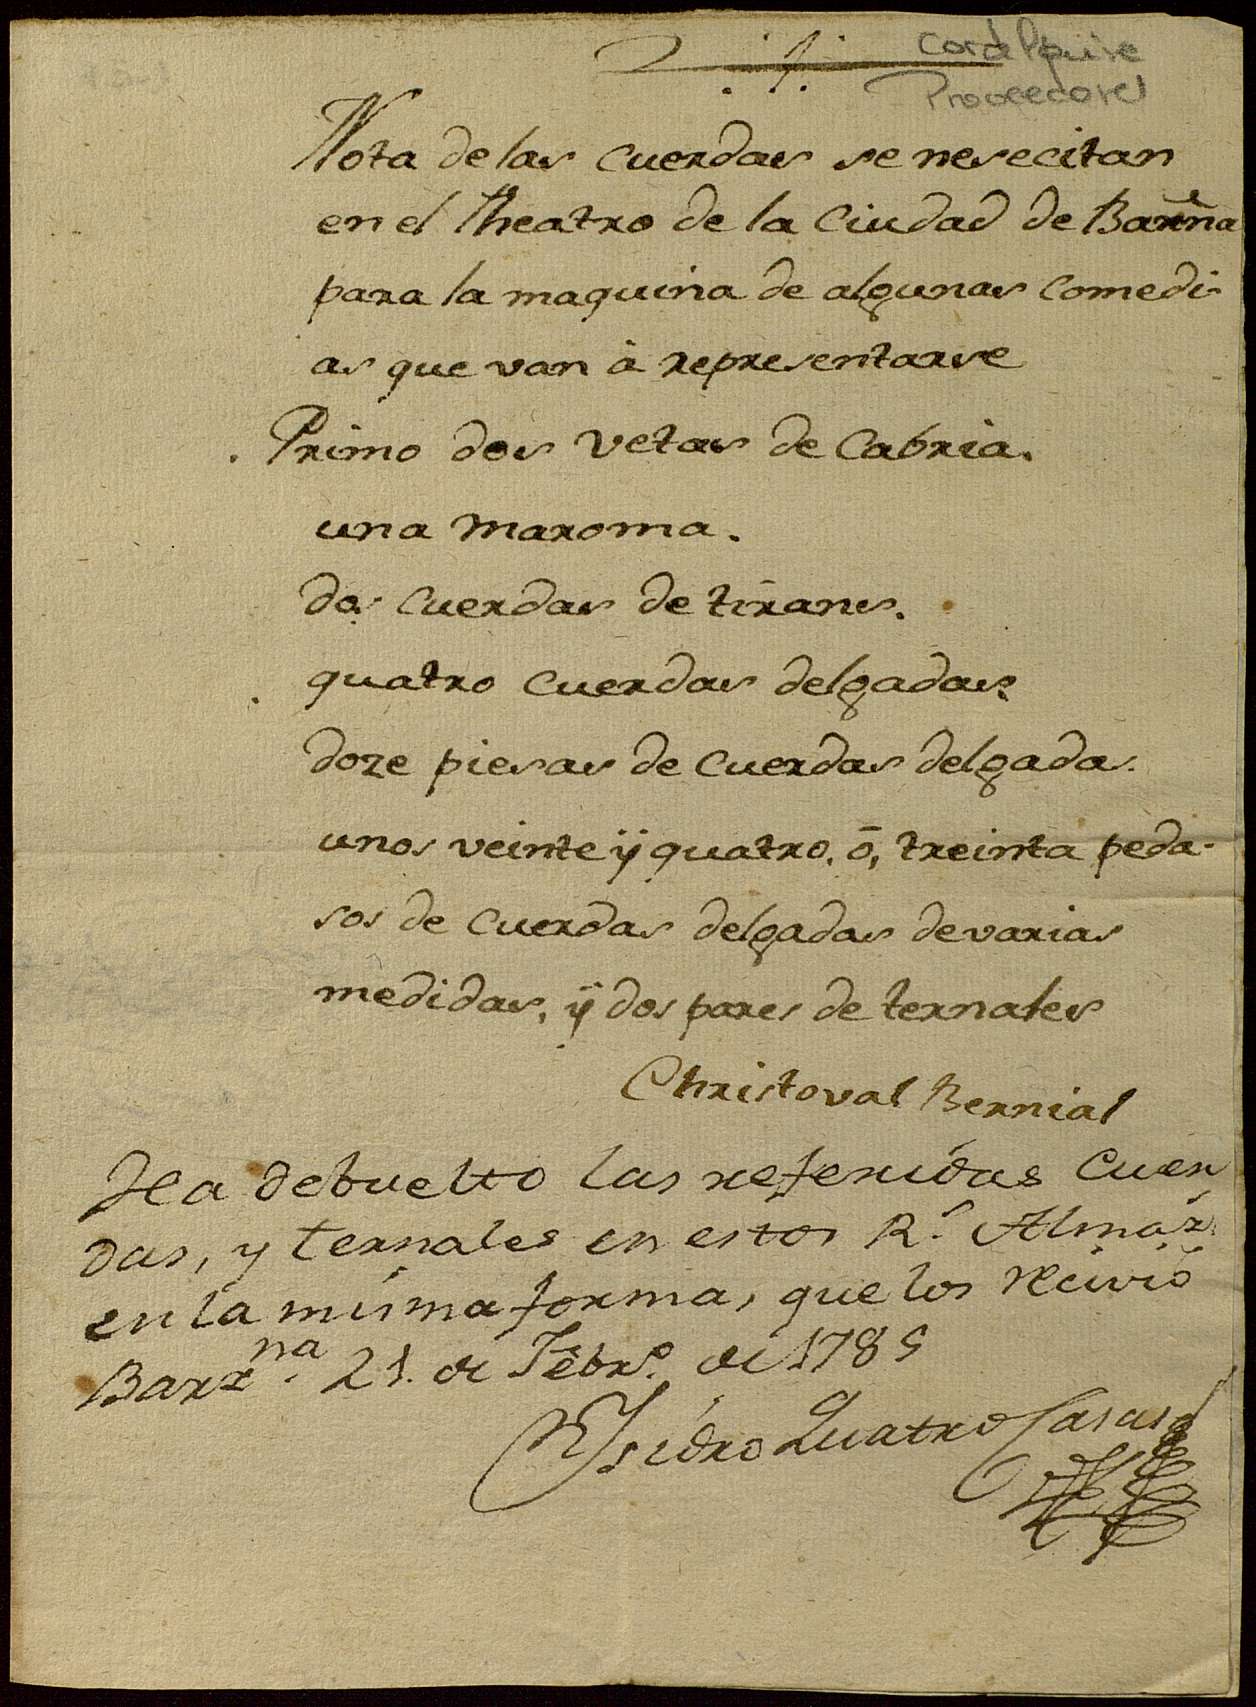 Proveedores
Nota de las cuerdas se nesecitan
en el Theatro de la Ciudad de Barña
para la maquina de algunas Comedi-
as que van à representarse
Primo dos Vetas de Cabria.
una Maroma.
dos Cuerdas de tirans.
quatro Cuerdas delgadas.
doze piesas de Cuerdas delgadas.
unos veinte ÿ quatro, ō, treinta peda-
sos de Cuerdas delgadas de varias
medidas, ÿ dos pares de ternales
Christoval Bernial
Ha debuelto las referidas Cuer
das, y ternales en estos Rˢ. Almazˢ.
en la misma forma, que los recivió
Barzⁿᵃ. 21. de Febrº. de 1785
Isidro Quatro Casas